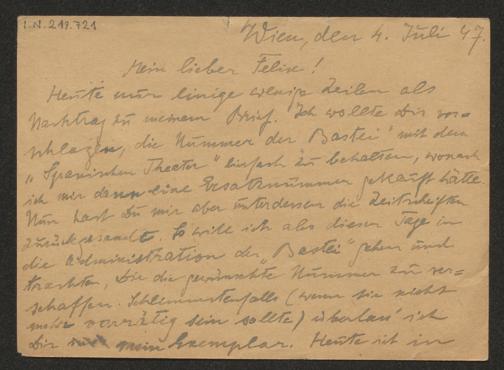 I.N. 219.721
Wien, den 4. Juli 47.
Mein lieber Felix!
Heute nur einige wenige Zeilen als
Nachtrag zu meinem Brief. Ich wollte Dir vor=
schlagen, die Nummer der "Bastei" mit dem
"Spanischen Theater" einfach zu behalten, wonach
ich mir dann eine Ersatznummer gekauft hätte.
Nun hast Du mir aber unterdessen die Zeitschriften
zurückgesandt. So will ich also dieser Tage in
die Administration der "Bastei" gehen und
trachten, Dir die gewünschte Nummer zu ver=
schaffen. Schlimmstenfalls (wenn sie nicht
mehr vorrätig sein sollte) überlass' ich
Dir mein Exemplar. Heute ist in